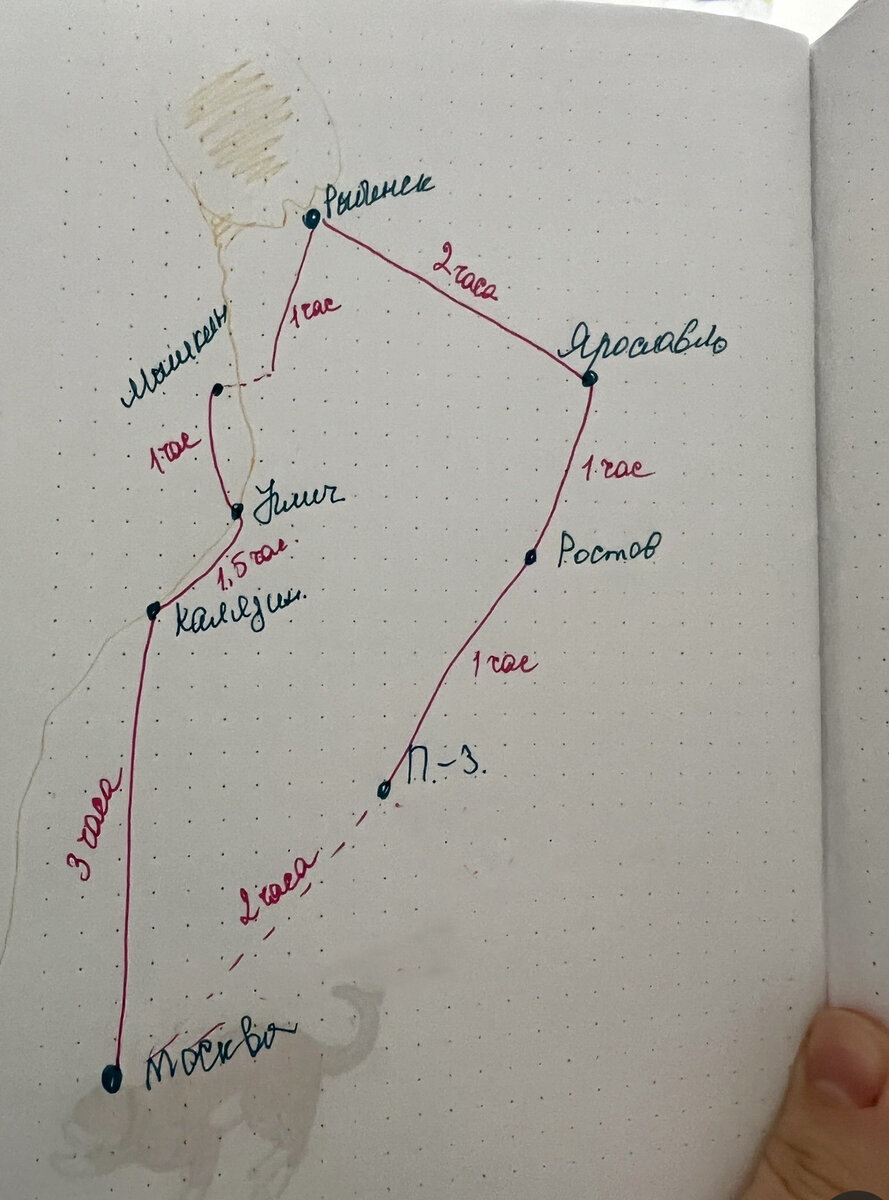 Рыбинск
2 часа
1 час
Ярославль
Мышкин
1 час
1 час
Углич
1,5 час.
Ростов
Калязин.
1 час
П.-З.
3 часа
2 часа
Москва